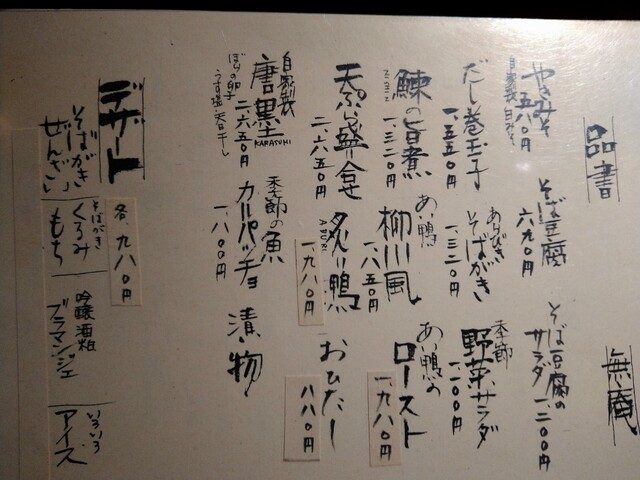 品書
無庵
やきみそ
自家製 白みそ
五八〇円
そば豆腐
六九〇円
そば豆腐の
サラダ 一、二〇〇円
だし巻玉子
一、五五〇円
あらびき
そばがき
一、三二〇円
季節
野菜サラダ
一、一〇〇円
鰊の旨煮
一、三二〇円
あい鴨
柳川風
一、八五〇円
あい鴨の
ロースト
一、九八〇円
天ぷら盛合せ
二、六五〇円
炙り鴨
一、九八〇円
おひたし
八八〇円
自家製
唐墨
KARASUMI
ぼらの卵
うす塩・天日干し
二、六五〇円
季節の魚
カルパッチョ
一、八〇〇円
漬け物
デザート
各、九八〇円
そばがき
ぜんざい
そばがき
くるみ
もち
吟醸酒粕
ブラマンジェ
いろいろ
アイス